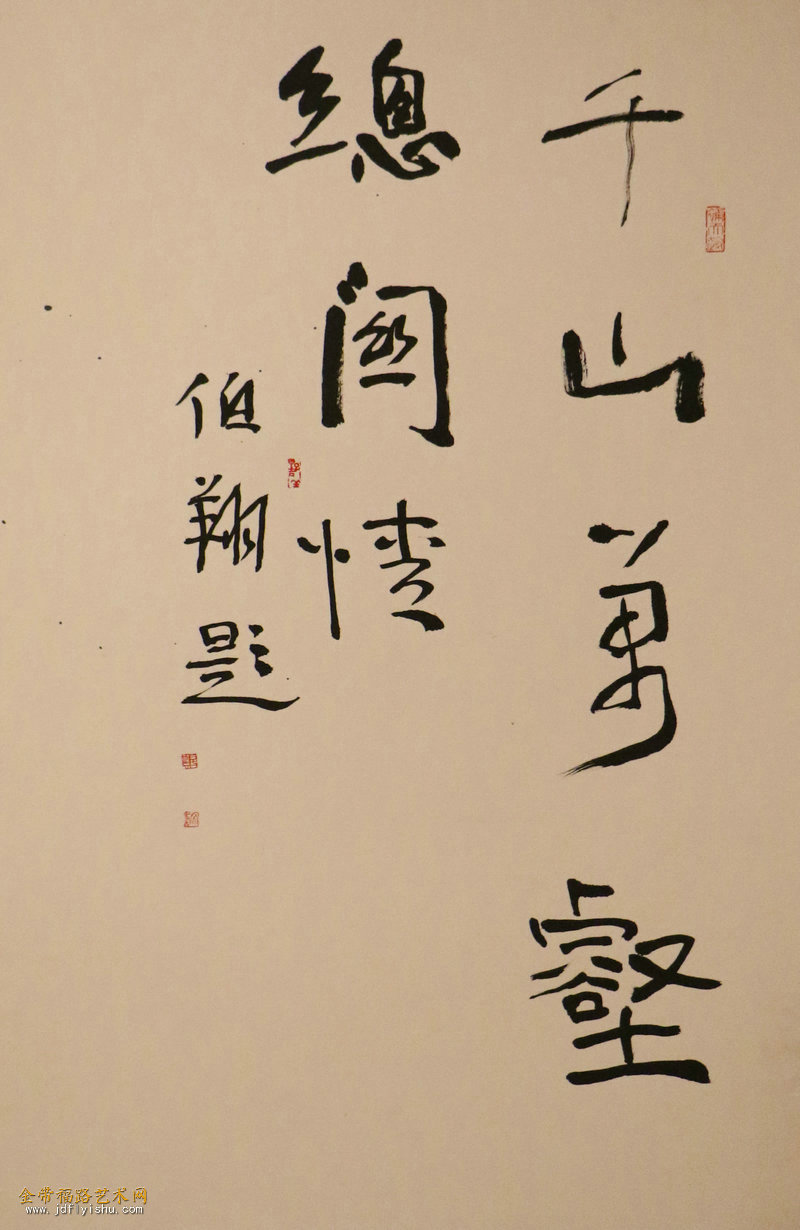 千山萬壑
總關情
伯翔題
金带福路艺术网
www.jdflyishu.com